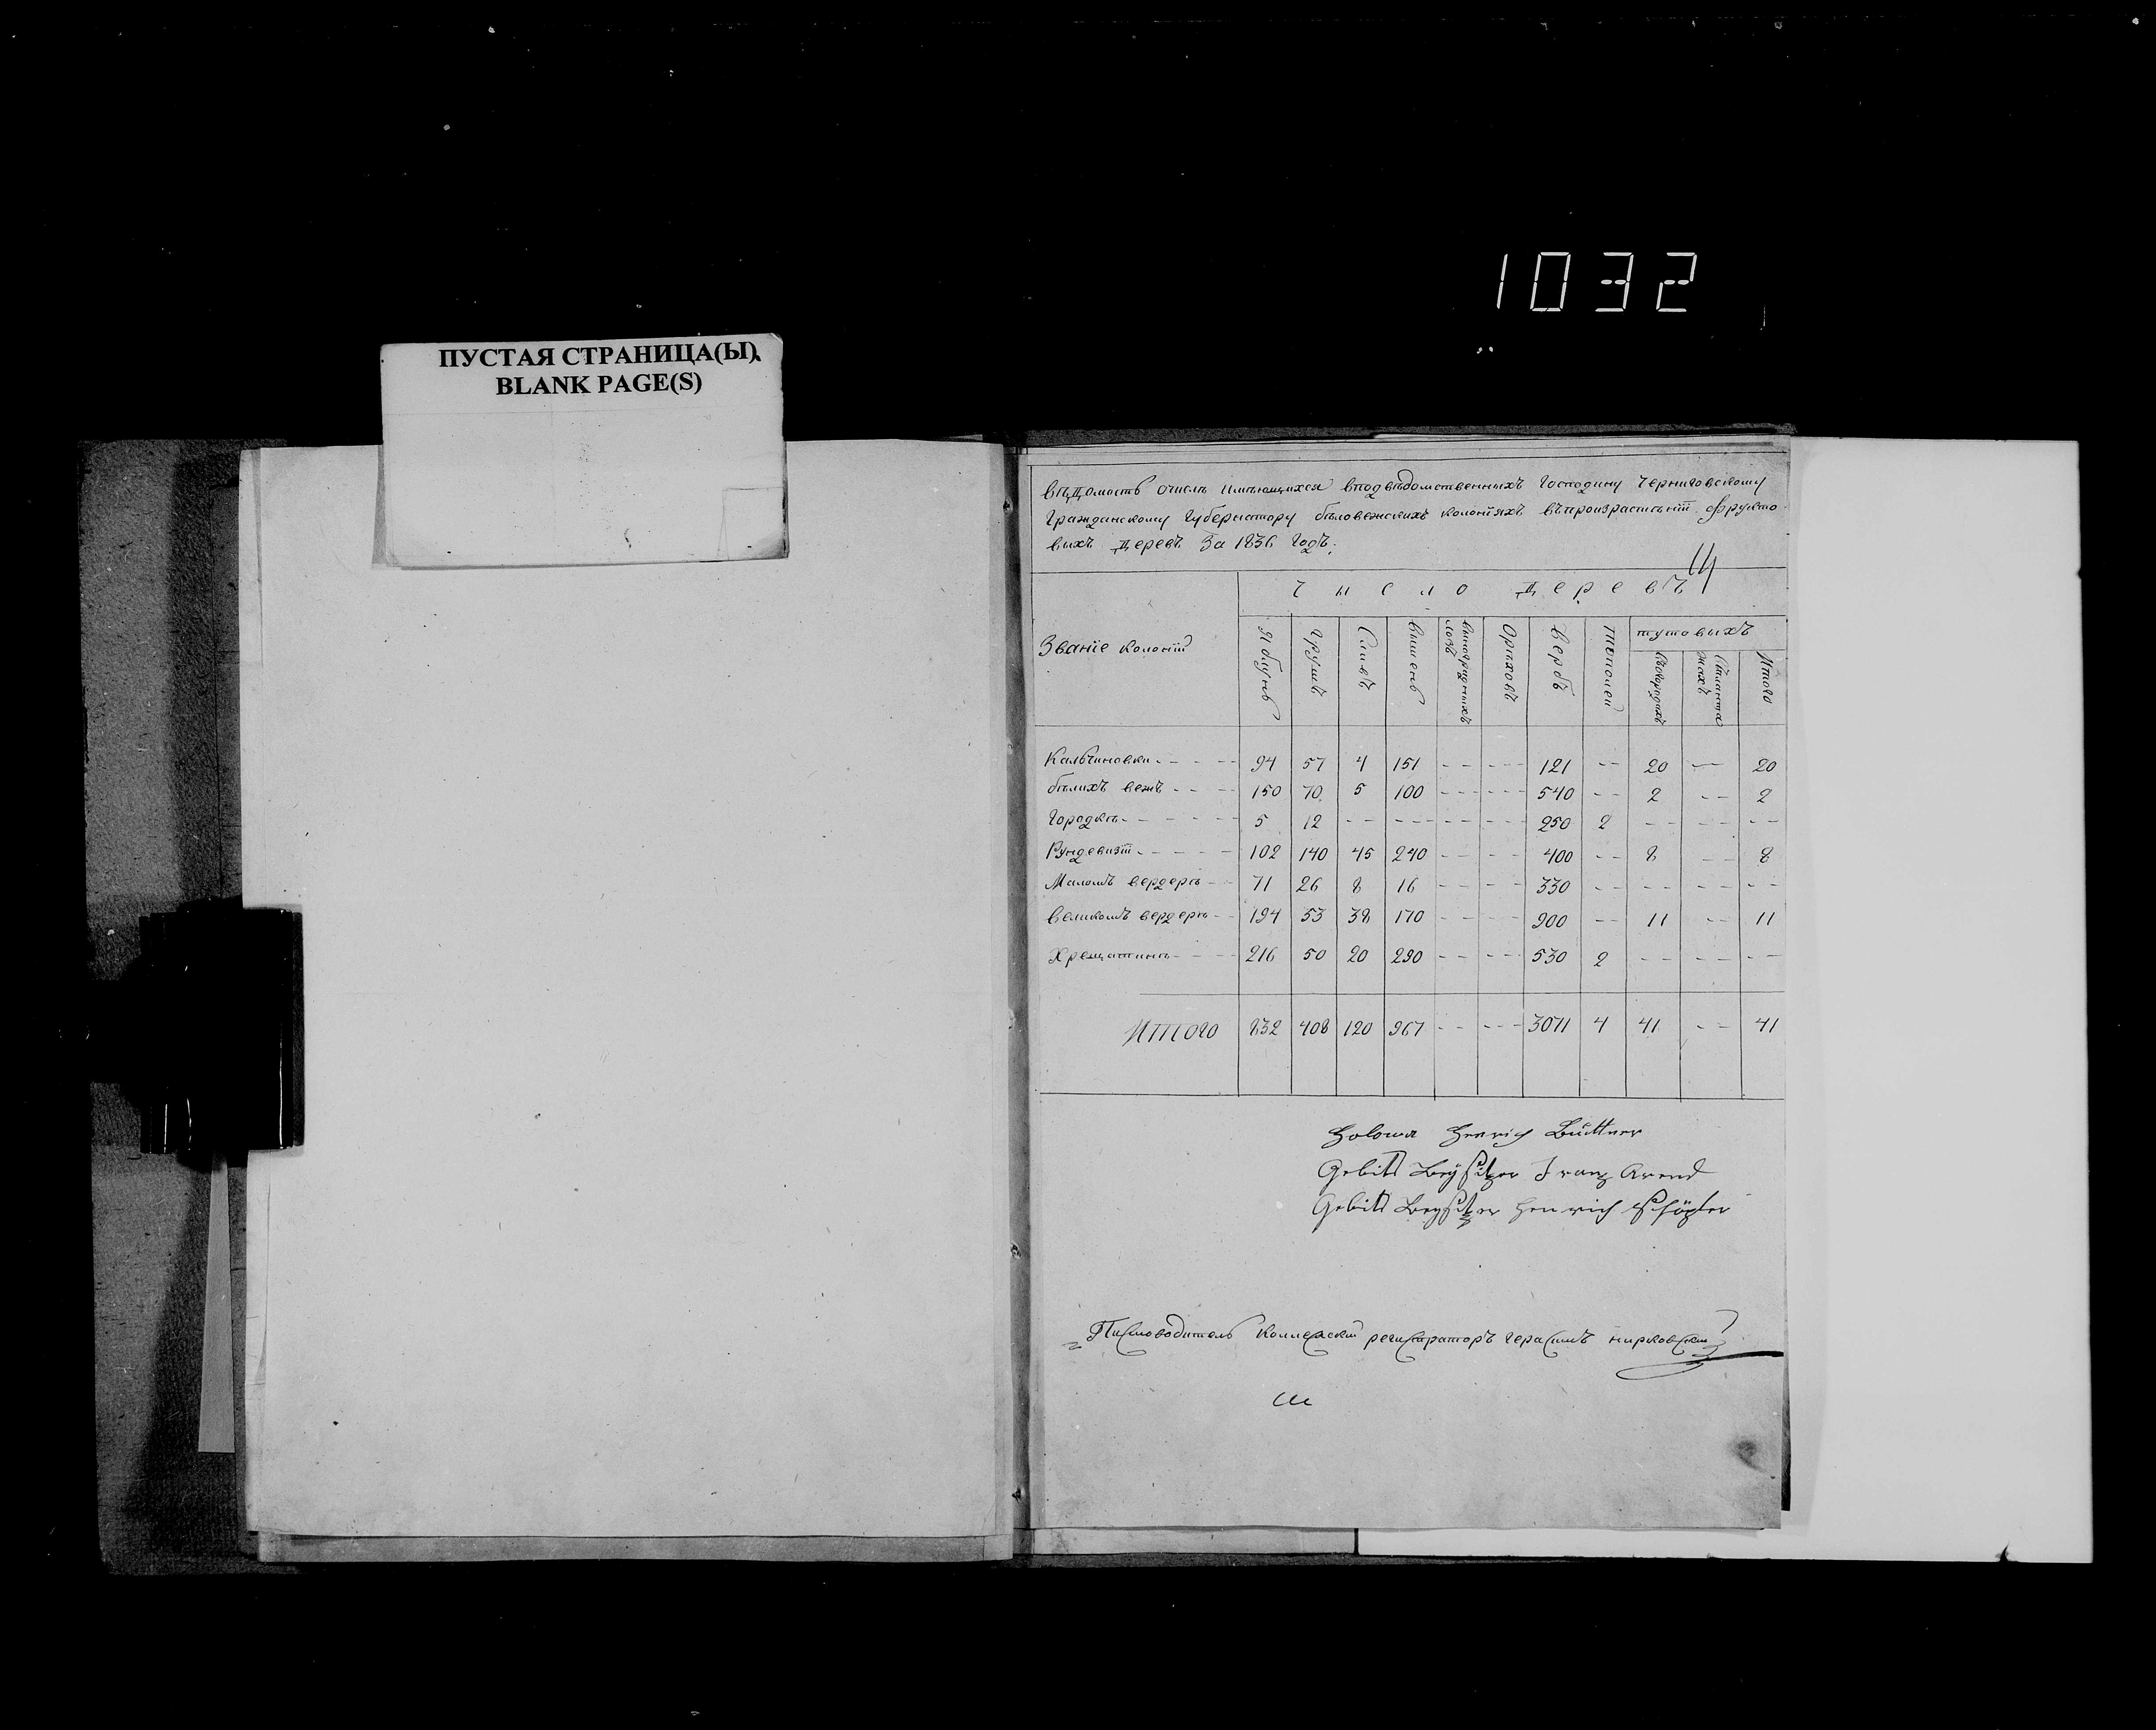 1032
ПУСТАЯ СТРАНИЦА(Ы)
BLANK PAGE(S)
Вѣдомость очислѣ имѣющихся вподвѣдомственныхъ Господину Черниговскому
Гражданскому Губернатору бѣловежскихъ колонїяхъ въпроизрастѣнїи фрукто-
выхъ деревъ За 1836 годъ.
14
Число деревъ
Званїе колонїй
Яблунь
грушъ
Сливъ
вишень
виноградныхъ лозъ
Орѣховъ
вербъ
тополей
тутовыхъ
Итого
Кальчиновки - - - - 94 57 4 151 - - - - - 121 - - 20 - - 20
бѣлихъ вежъ - - - - 150 70 5 100 - - - - - 540 - - 2 - - 2
Городкѣ - - - - - - 5 12 - - - - - - - - - - 250 2 - - - - - -
Рундевизїи - - - - - 102 140 45 240 - - - - 400 - - 8 - - 8
Маломъ вердерѣ - - 71 26 8 16 - - - - 330 - - - - - - - -
великомъ вердерѣ - - 194 53 38 170 - - - - 900 - - 11 - - 11
Хрещатикѣ - - - - 216 50 20 290 - - - - - 530 2 - - - - - -
Итого 832 408 120 967 - - - - - 3071 4 41 - - 41
Holowa Henrich Büttner
Gebits Beysitzer Franz Arend
Gebits Beysitzer Henrich
Писмоводитель Коллежскїй регистраторъ Герасимъ